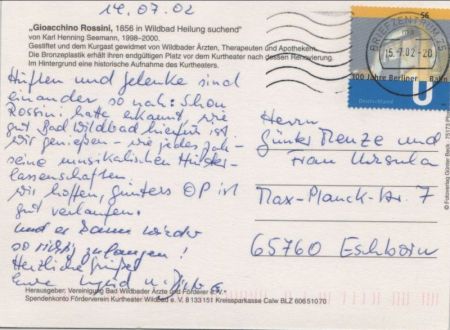 14.07.02
„Gioacchino Rossini, 1856 in Wildbad Heilung suchend"
von Karl Henning Seemann, 1998–2000.
Gestiftet und dem Kurgast gewidmet von Wildbader Ärzten, Therapeuten und Apothekern.
Die Bronzeplastik erhält ihren endgültigen Platz vor dem Kurtheater nach dessen Renovierung.
Im Hintergrund eine historische Aufnahme des Kurtheaters.
56
BRIEFZENTRUM
15.-7.02-20
100 Jahre Berliner Bahn
Deutschland
U
„Hüften und Gelenke sind
einander so nah: Schon
Rossini hatte erkannt, wie
gut Bad Wildbad hierfür ist.
Wir genießen – wie jedes Jahr –
seine musikalischen Hinter-
lassenschaften.
Wir hoffen, Günters OP ist
gut verlaufen.
und er kann wieder
so richtig zulangen!
Herzliche Grüße
Eure
Herrn
Günter Menze und
Frau Ursula
Max-Planck-Str. 7
65760 Eschborn
Herausgeber: Vereinigung Bad Wildbader Ärzte und Förderer e.V.
Spendenkonto Förderverein Kurtheater Wildbad e.V. 8133151 Kreissparkasse Calw BLZ 60651070